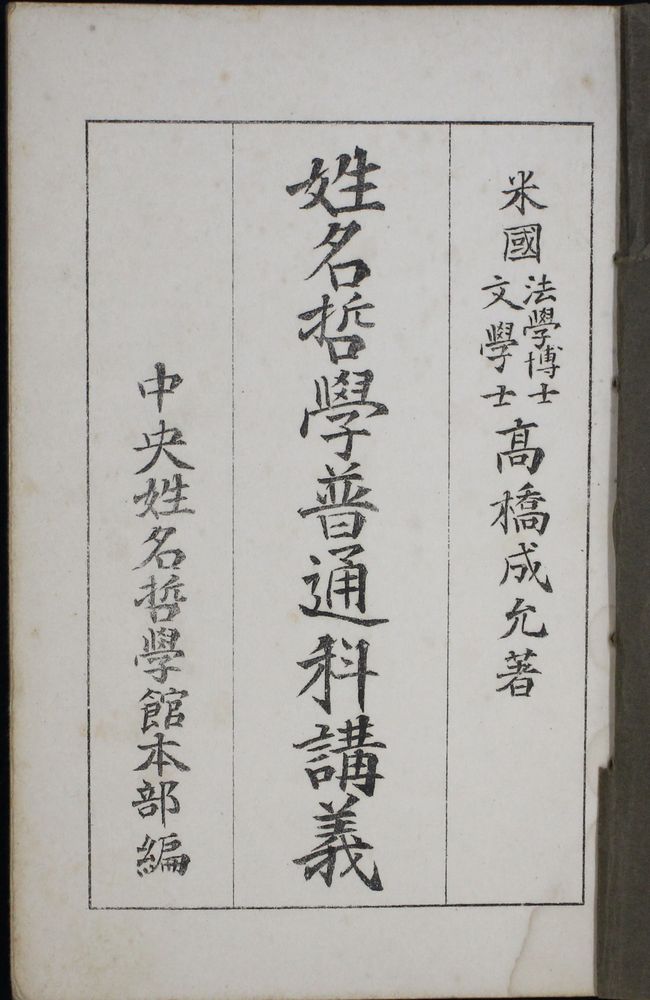 米國法學博士文學士高橋成允著
姓名哲學普通科講義
中央姓名哲學館本部編